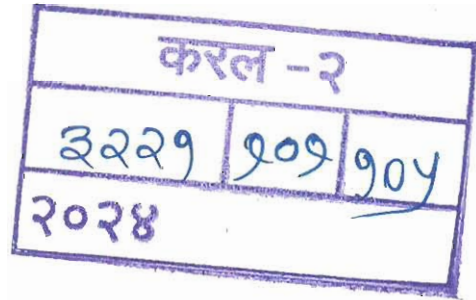 करल - २
३२२१ १०१ १०५
२०२४